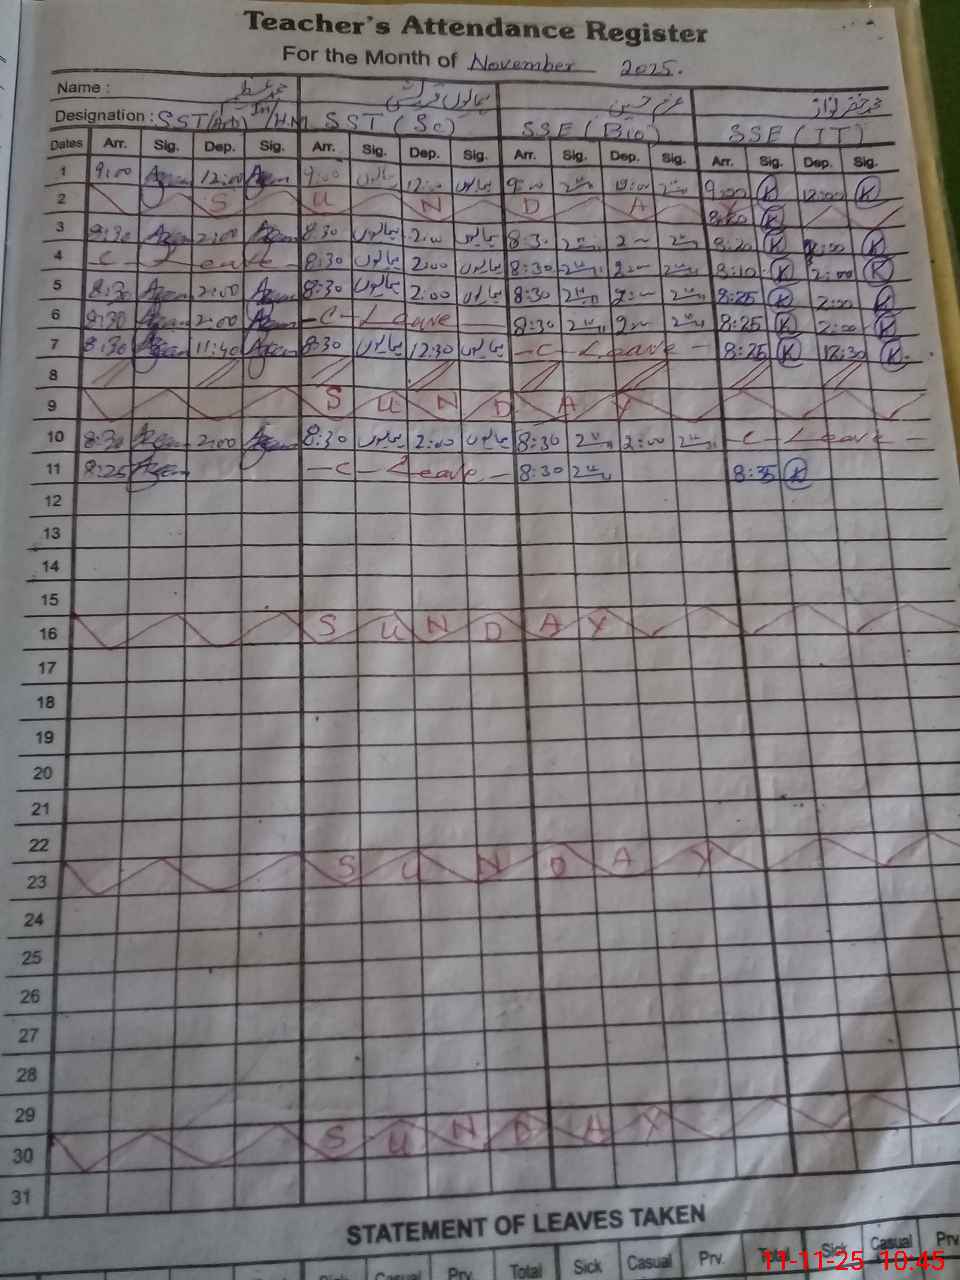 Teacher's Attendance Register
For the Month of November 2025.
Name : ہمایوں قریشی
Designation : SST (Arts) In/H.M SST (Sc) SSE (Bio) SSE (IT)
Dates Arr. Sig. Dep. Sig. Arr. Sig. Dep. Sig. Arr. Sig. Dep. Sig. Arr. Sig. Dep. Sig.
1 9:00 12:00 9:00 ہمایوں 12:00 ہمایوں 9:00 12:00 9:00 K 12:00 K
2 S U N D A Y
8:20 K
3 8:30 2:00 8:30 ہمایوں 2:00 ہمایوں 8:30 2:00 8:20 K 2:00 K
4 C - Leave 8:30 ہمایوں 2:00 ہمایوں 8:30 2:00 8:10 K 2:00 K
5 8:30 2:00 8:30 ہمایوں 2:00 ہمایوں 8:30 2:00 8:25 K 2:00 K
6 8:30 2:00 - C - Leave 8:30 2:00 8:25 K 2:00 K
7 8:30 11:40 8:30 ہمایوں 12:30 ہمایوں - C - Leave - 8:25 K 12:30 K
8
9 S U N D A Y
10 8:30 2:00 8:30 ہمایوں 2:00 ہمایوں 8:30 2:00 - C - Leave -
11 8:25 - C - Leave - 8:30 8:35 K
12
13
14
15
16 S U N D A Y
17
18
19
20
21
22
23 S U N D A Y
24
25
26
27
28
29
30 S U N D A Y
31
STATEMENT OF LEAVES TAKEN
Sick Casual Prv. Total Sick Casual Prv. Total Sick Casual Prv.
11-11-25 10:45